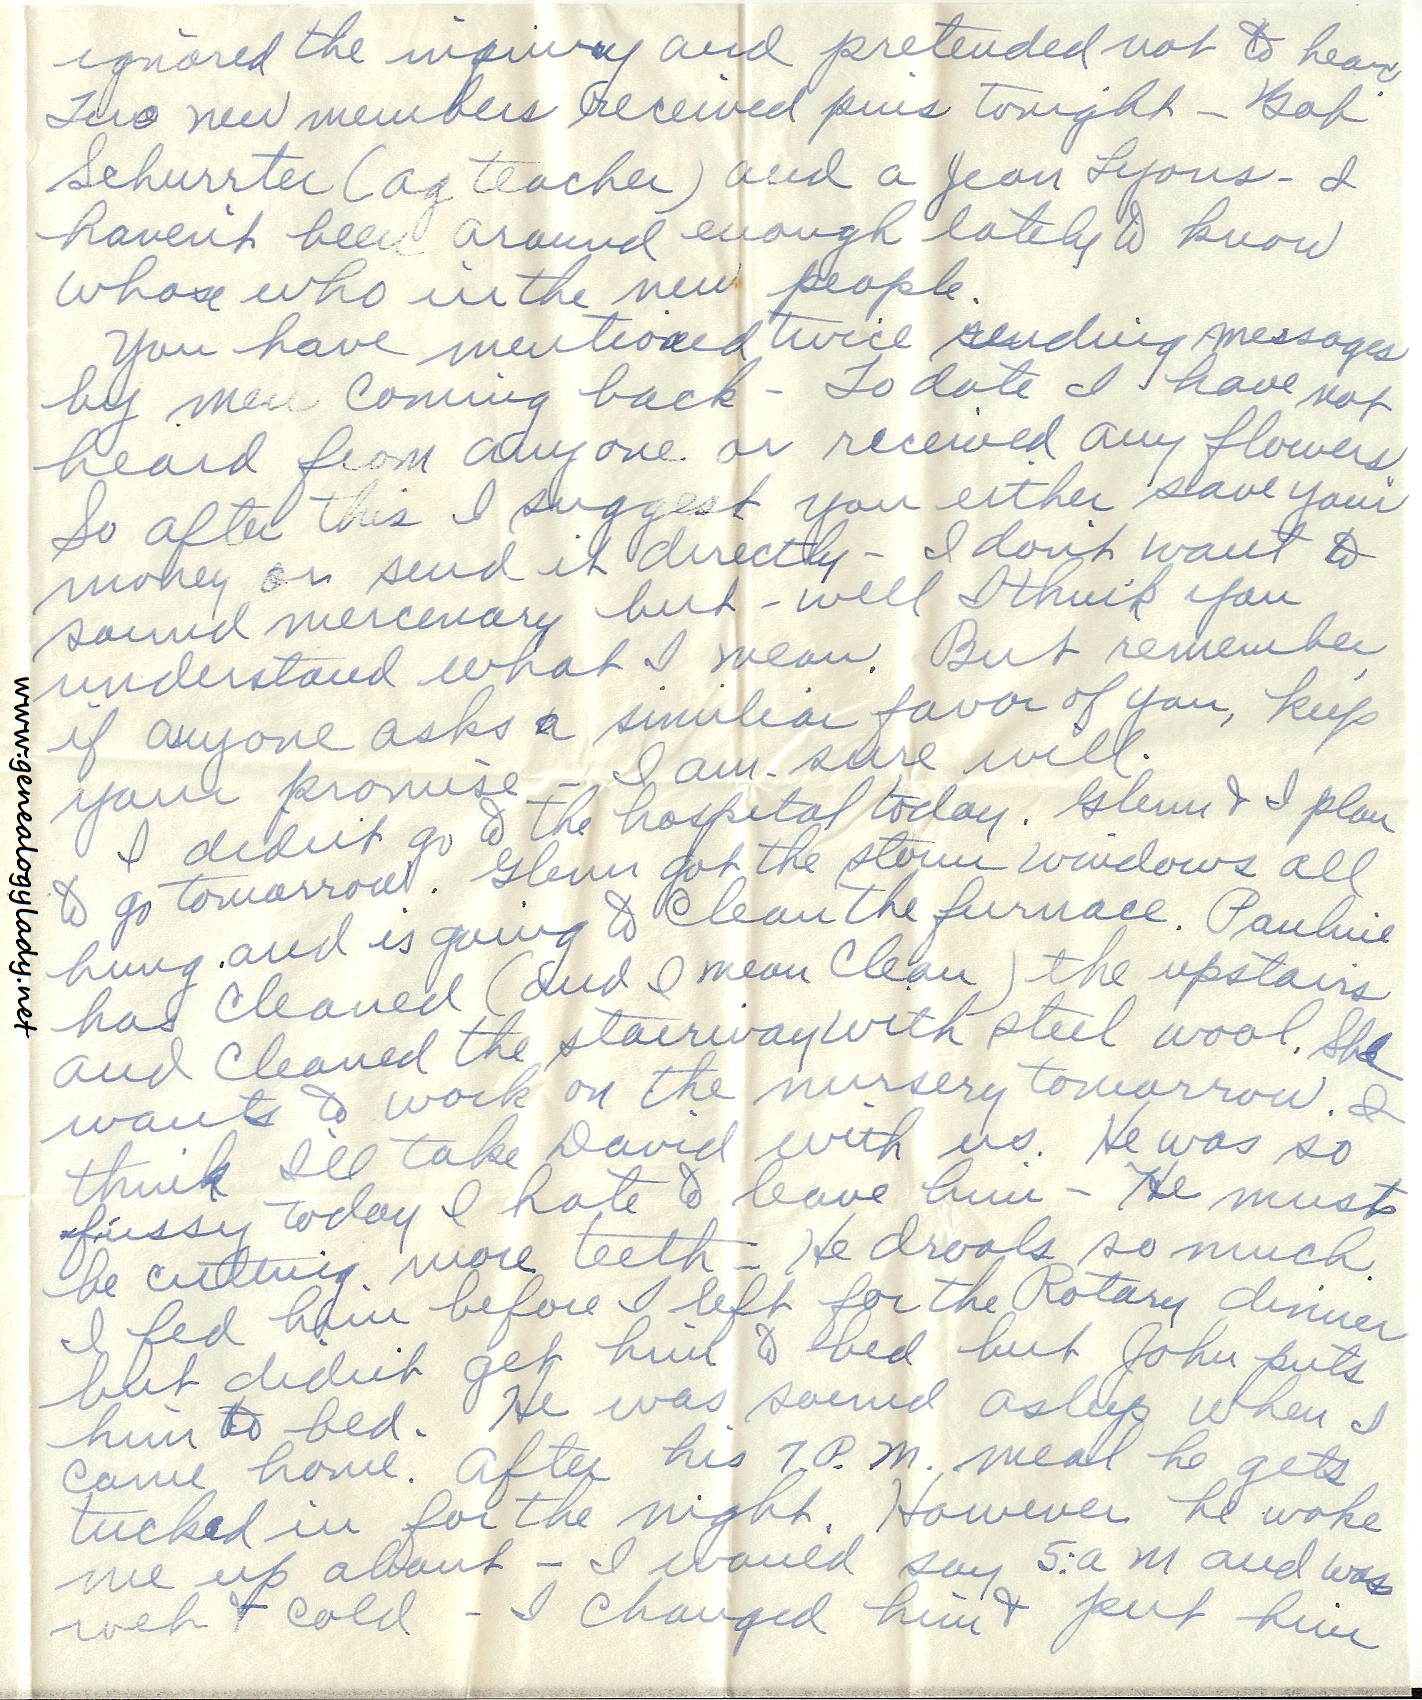 ignored the inquiry and pretended not to hear
Two new members received pins tonight - Bob
Schurrter (ag teacher) and a Jean Lyons - I
haven't been around enough lately to know
whose who in the new people.
You have mentioned twice sending messages
by men coming back - To date I have not
heard from anyone or received any flowers.
So after this I suggest you either save your
money or send it directly - I don't want to
sound mercenary but - well I think you
understand what I mean. But remember,
if anyone asks a similiar favor of you, keep
your promise - I am sure will.
I didn't go to the hospital today. Glenn & I plan
to go tomorrow. Glenn got the storm windows all
hung and is going to clean the furnace. Pauline
has cleaned (and I mean clean) the upstairs
and cleaned the stairway with steel wool. She
wants to work on the nursery tomorrow. I
think I'll take David with us. He was so
fussy today I hate to leave him - He must
be cutting more teeth - He drools so much.
I fed him before I left for the Rotary dinner
but didn't get him to bed but John puts
him to bed. He was sound asleep when I
came home. After his 7 P.M. meal he gets
tucked in for the night. However he woke
me up about - I would say 5:a m and was
wet & cold - I changed him & put him
www.genealogylady.net